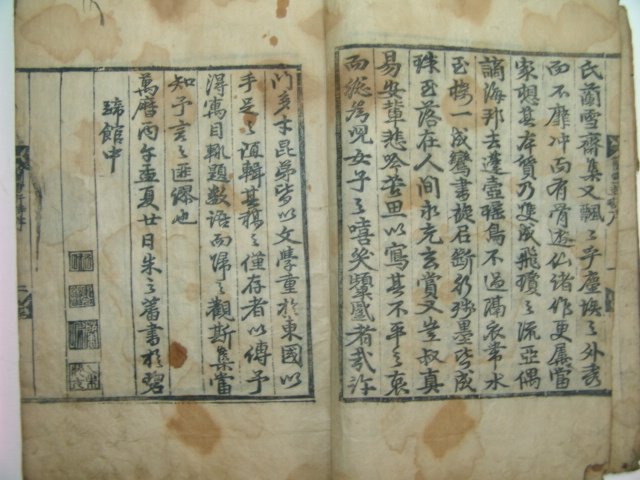 氏蘭雪齋集又飄〻乎塵埃之外秀
而不靡冲而有骨遊仙諸作更屬當
家想其本質乃雙成飛瓊之流亞偶
謫海邦去蓬壺瑤島不過隔衣帶水
玉樓一成鸞書旋召斷行殘墨皆成
珠玉落在人間永充玄賞又豈叔真
易安輩悲吟苦思以寫其不平之衷
而總爲兒女子之嘻笑顰蹙者哉許
門多才昆弟皆以文學重於東國以
手足之誼輯其稿之僅存者以傳予
得寓目輒題數語而歸之觀斯集當
知予言之匪謬也
萬曆丙午孟夏廿日朱之蕃書於碧
蹄館中